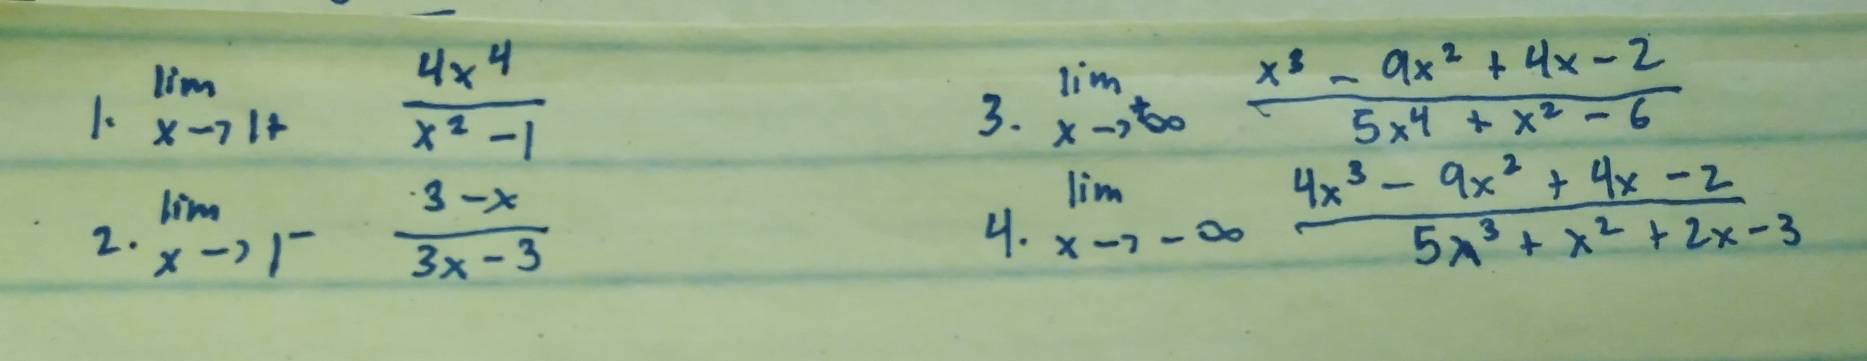 1. lim x→1+ 4x⁴/(x² - 1)
2. lim x→1⁻ (3 - x)/(3x - 3)
3. lim x→+∞ (x³ - 9x² + 4x - 2)/(5x⁴ + x² - 6)
4. lim x→-∞ (4x³ - 9x² + 4x - 2)/(5x³ + x² + 2x - 3)